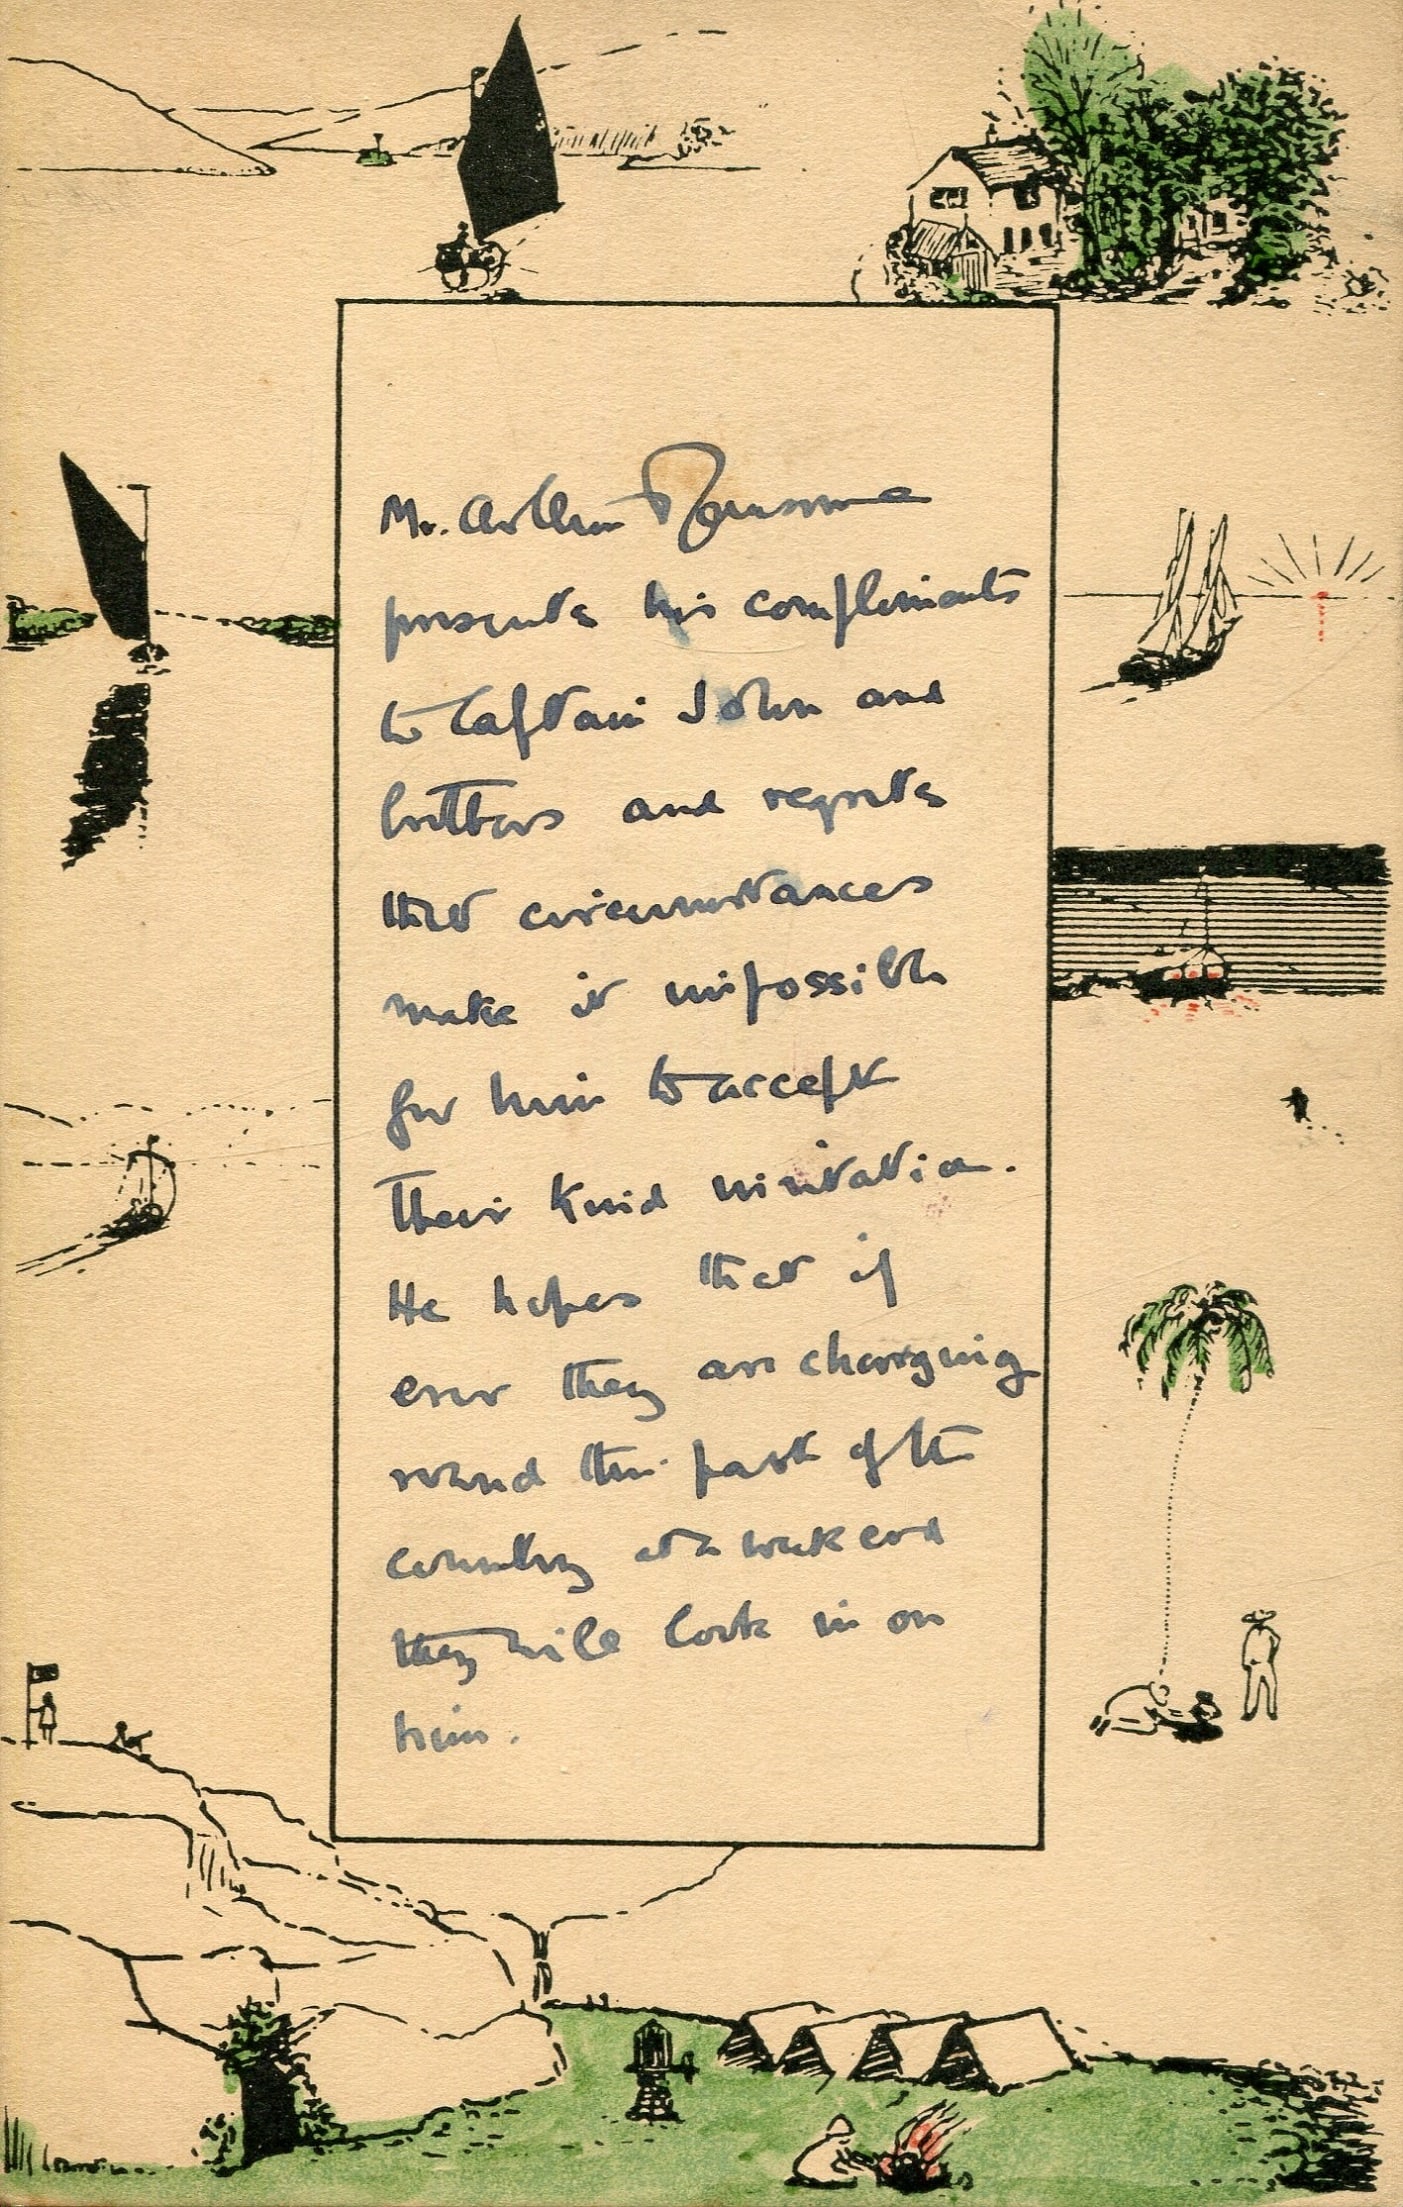 Mr. Arthur Ransome
presents his compliments
to Captain John and
brothers and regrets
that circumstances
make it impossible
for him to accept
their kind invitation.
He hopes that if
ever they are charging
round this part of the
country at a week end
they will look in on
him.